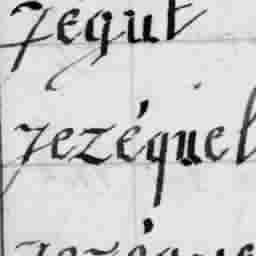 Jegut
Jezéquel